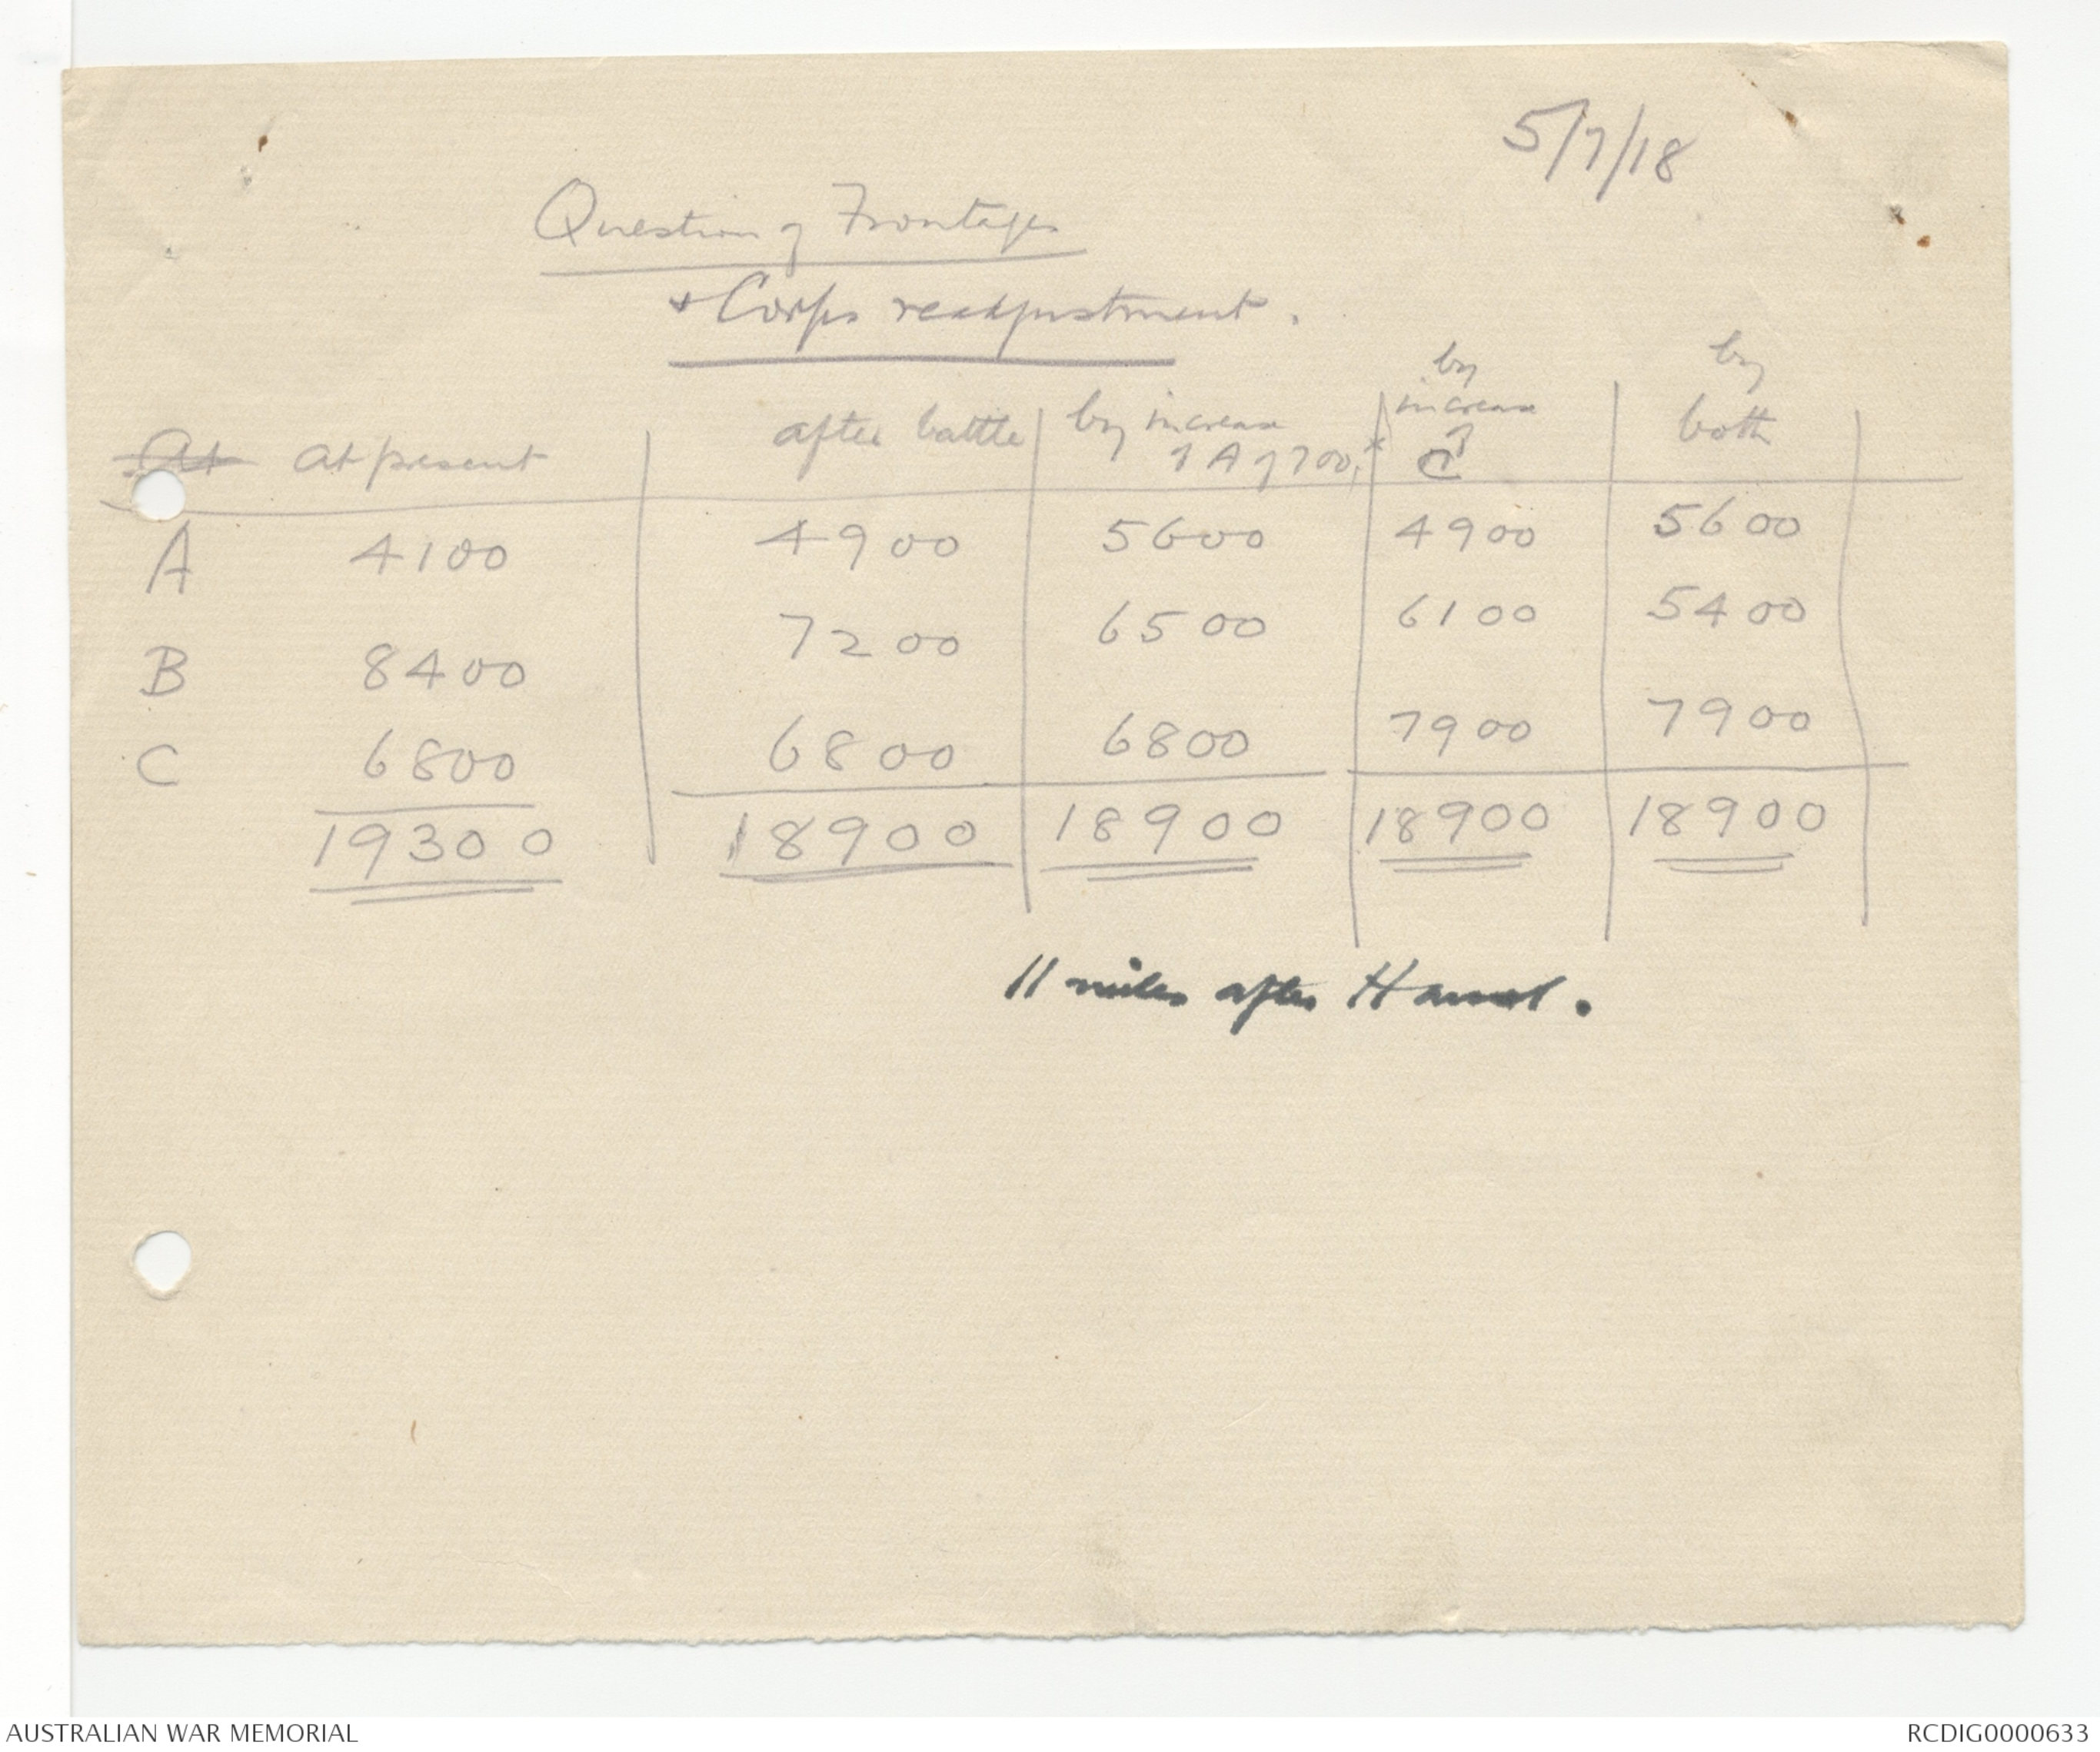 5/7/18
Question of Frontages
+ Corps readjustment.
At at present | after battle | by increase of A of 700,* | by increase of C | by both
A 4100 | 4900 | 5600 | 4900 | 5600
B 8400 | 7200 | 6500 | 6100 | 5400
C 6800 | 6800 | 6800 | 7900 | 7900
19300 | 18900 | 18900 | 18900 | 18900
11 miles after Hamel.
AUSTRALIAN WAR MEMORIAL
RCDIG0000633